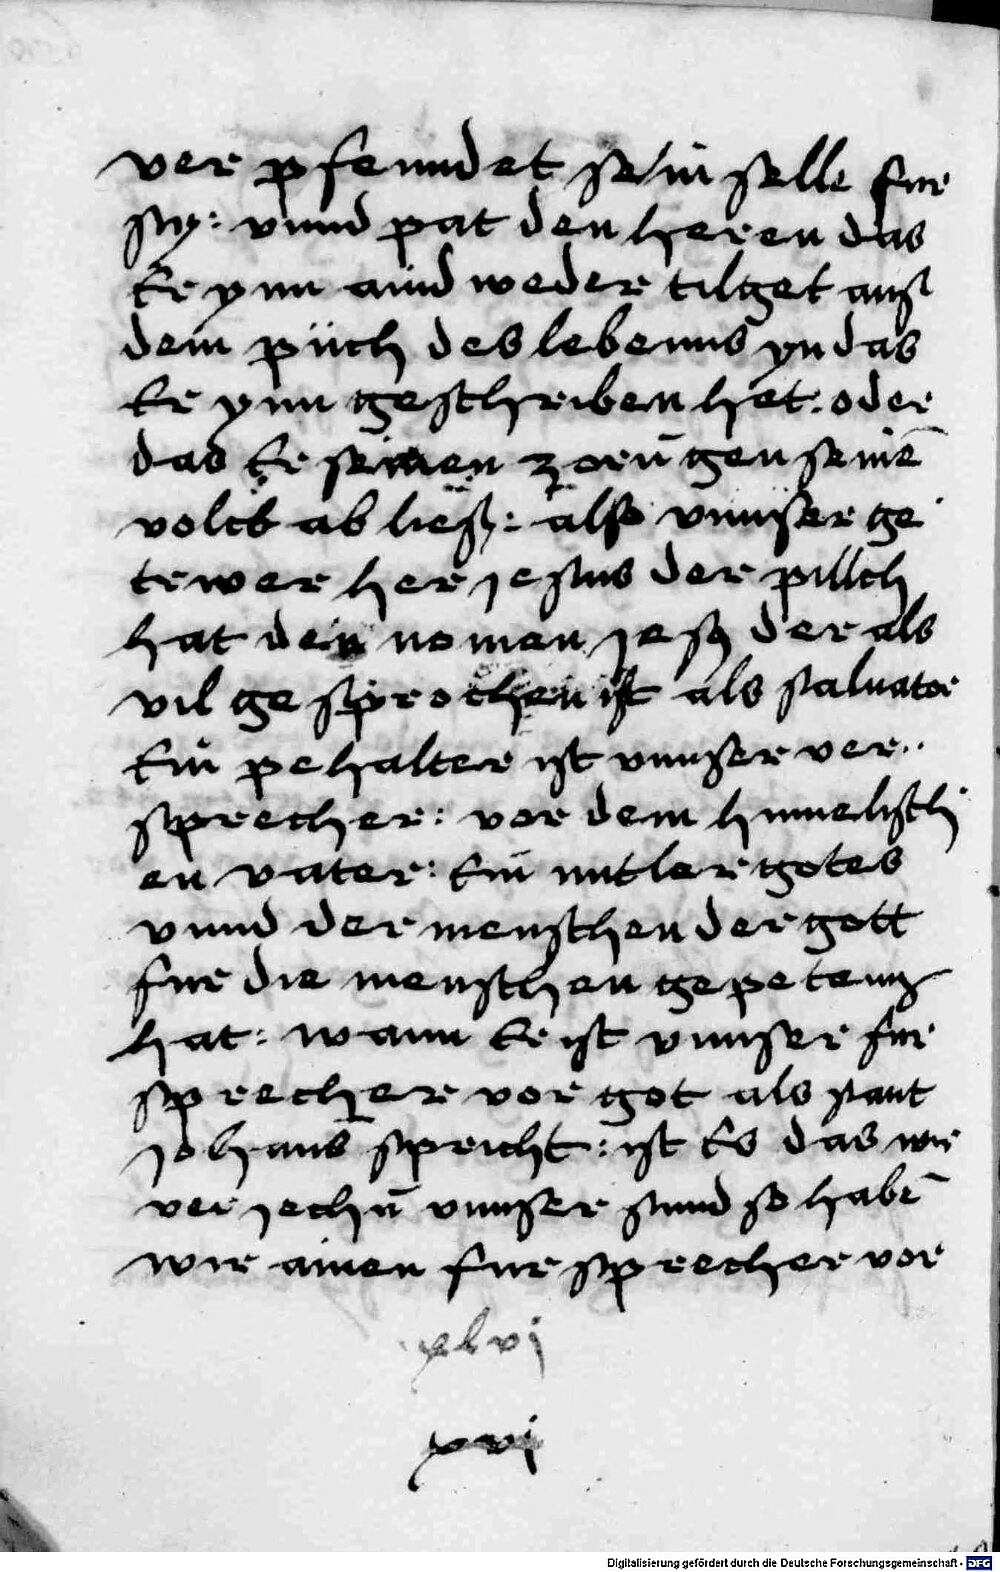 ver pfenndet sein selle fur
sy: vnnd pat den heren das
Er ynn aind weder tilget auß
dem püch des lebenns yn das
Er ynn geschriben het: oder
das Er seinen zorn gen seinē
volck ab ließ: also vnnser ge
trewer her jesus der pillch
hat den nomen jesus der als
vil gesprochen ist als saluator
Ein pehalter ist vnnser ver
sprecher: vor dem himelisch
en vater: Ein mitler gotes
vnnd der menschen der gott
fur die menschen gepetenn
hat: wann Er ist vnnser fur
sprecher vor got als sant
johans spricht: ist Es das wir
verjechn̄ vnnser sunnd so habē
wir ainen fursprecher vor
xlvj
xvj
Digitalisierung gefördert durch die Deutsche Forschungsgemeinschaft - DFG